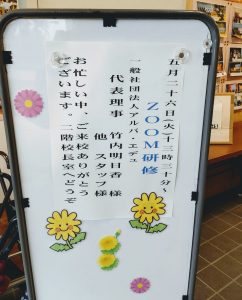 五月二十六日(火)十三時三十分～
ZOOM研修
一般社団法人アルバ・エデュ
代表理事 竹内明日香 様
他 スタッフ様
お忙しい中、ご来校ありがとう
ございます。二階校長室へどうぞ